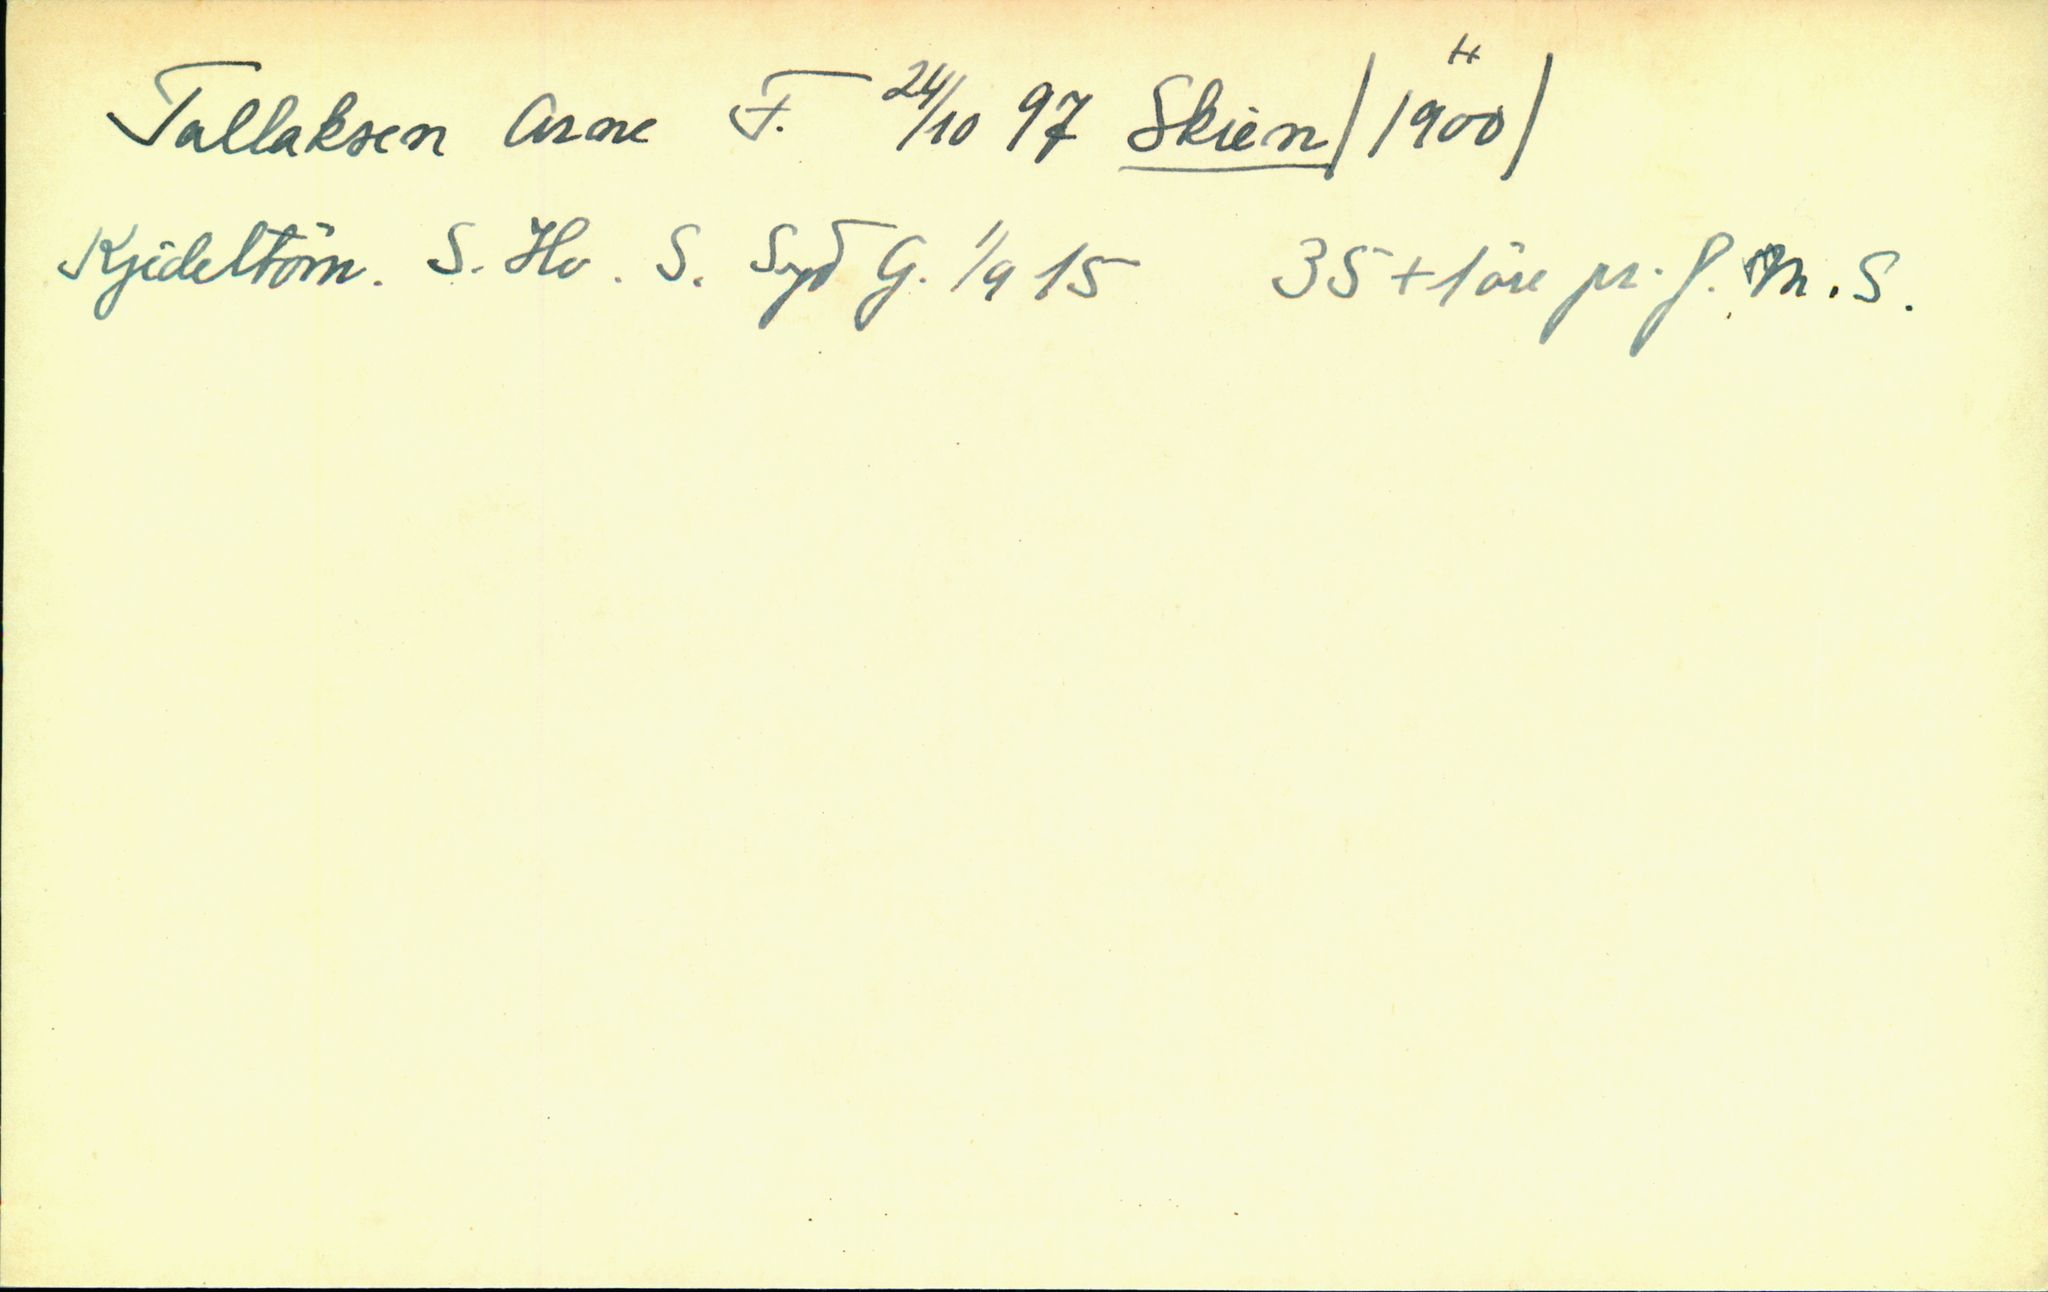 Tallaksen Arne F. 24/10 97 Skien / 1900 /
Kjideltöm. S. Hv. S. Syd G. 1/9 15 35 + 1 öre pr. f. M. S.